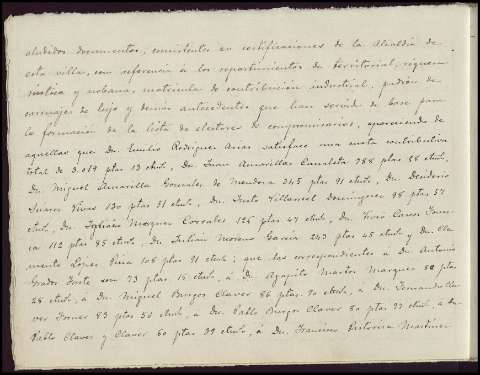 aludidos documentos, consistentes en certificaciones de la Alcaldía de
esta villa, con referencia á los repartimientos de territorial, riqueza
rústica y urbana, matrícula de contribución industrial, padrón de
carruajes de lujo y demás antecedentes que han servido de base para
la formación de la lista de electores de compromisarios, apareciendo de
aquellas que Dn. Emilio Rodríguez Arias satisface una cuota contributiva
total de 3.019 ptas 13 cts, Dn. Juan Amarillas Canaleta 388 ptas 68 cts,
Dn. Miguel Amarilla Gonzales de Mendoza 345 ptas 91 cts, Dn. Desiderio
Suárez Vivas 130 ptas 51 cts, Dn. Justo Villarroel Domínguez 98 ptas 57
cts, Dn. Marquez Corrales 126 ptas 47 cts, Dn. Casas
112 ptas 95 cts, Dn. Julián Moreno García 243 ptas 45 cts y Dn. Cle
mente Lopez Piria 108 ptas 91 cts; que las correspondientes á Dn. Antonio
Grados son 73 ptas 16 cts, á Dn. Agapito Martos Marquez ptas
28 cts, á Dn. Miguel Burgos Claver 86 ptas cts, á Dn. Fernando Cla
ver 83 ptas 50 cts, á Dn. Pablo Burgos Claver 80 ptas 77 cts, á Dn.
Pablo Claver y Claver 60 ptas 39 cts, á Dn. Francisco Martínez